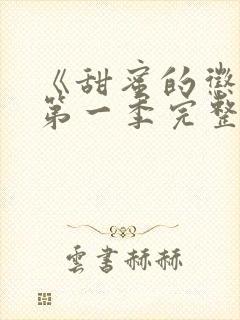 《甜蜜的懲
第一季完整
雲書赫赫